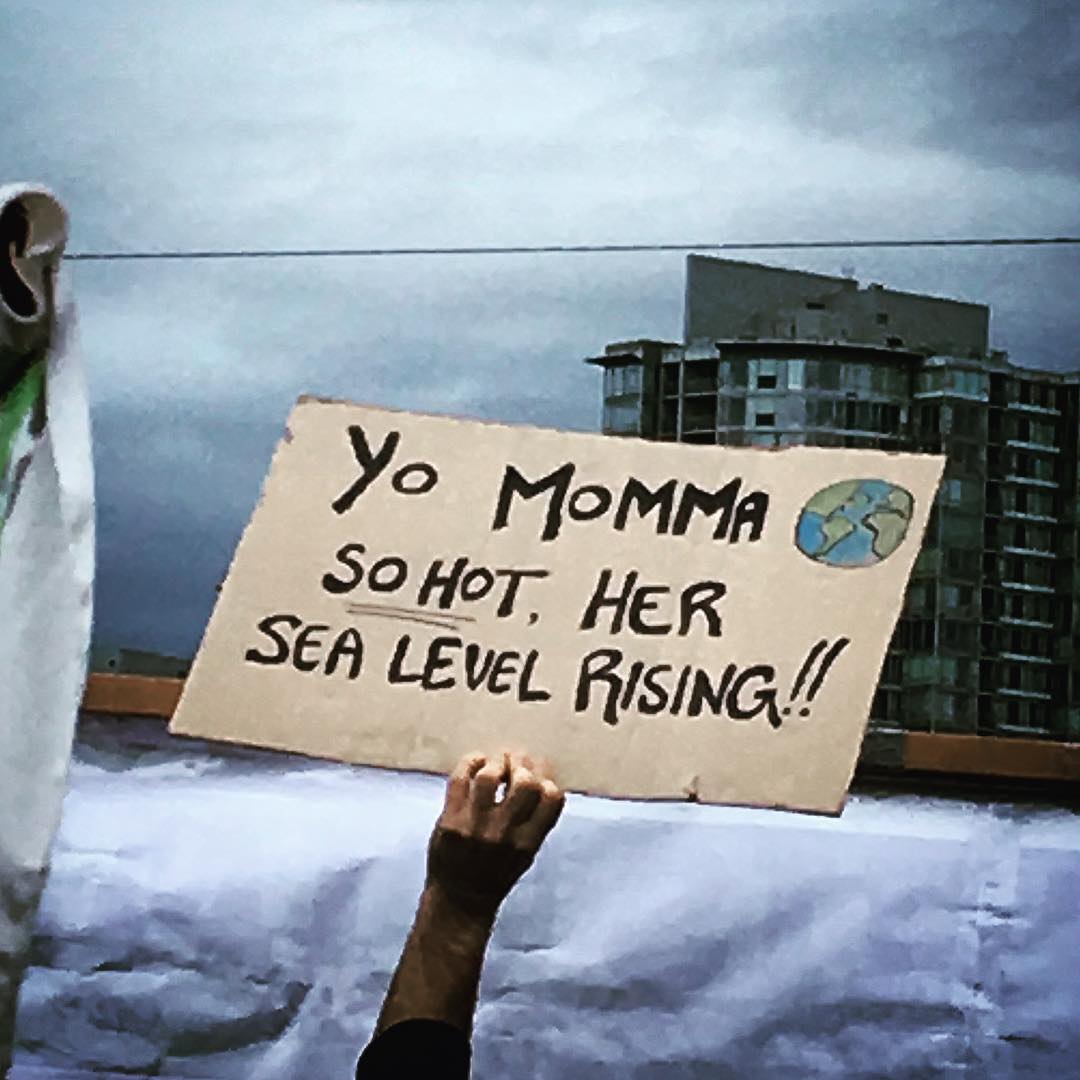 Yo MOMMA
SO HOT, HER
SEA LEVEL RISING!!